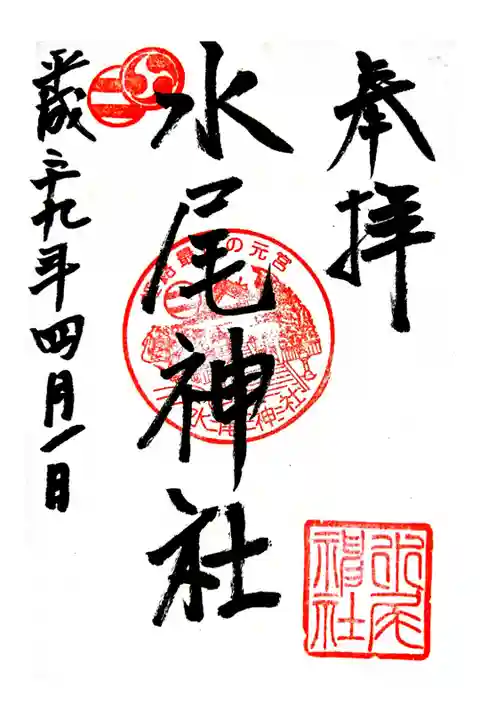 奉拝
水尾神社
平成二十九年四月一日
の元宮
水尾神社
水尾神社